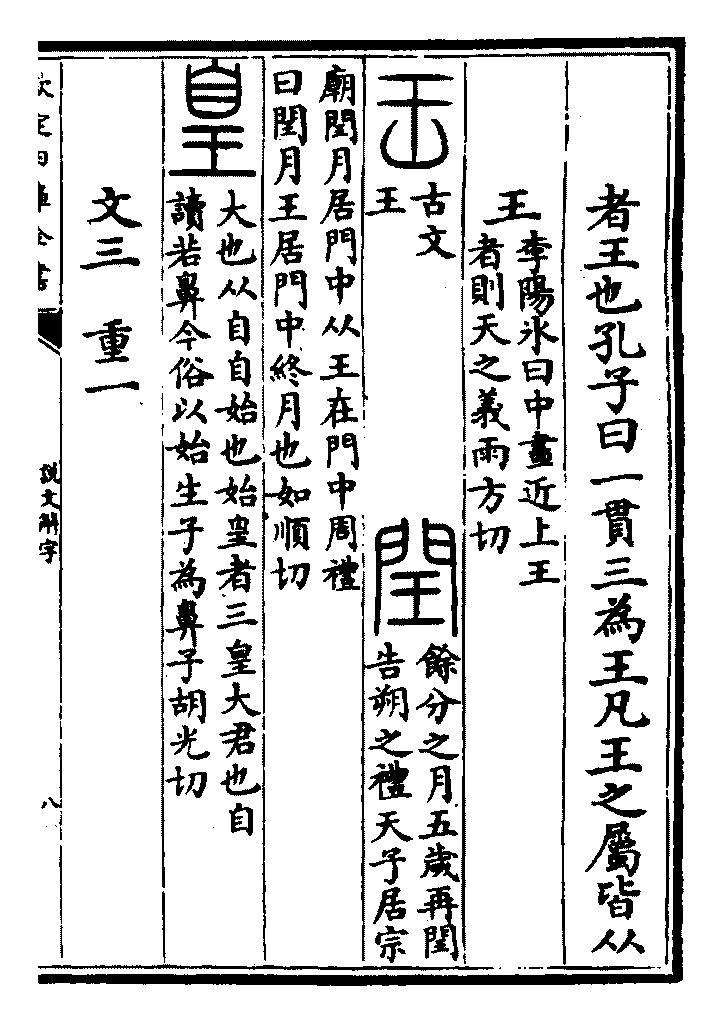 者王也孔子曰一貫三為王凡王之屬皆从
王
李陽冰曰中畫近上王
者則天之義雨方切
𠙻
古文
王
閏
餘分之月五歲再閏
告朔之禮天子居宗
廟閏月居門中从王在門中周禮
曰閏月王居門中終月也如順切
皇
大也从自自始也始皇者三皇大君也自
讀若鼻今俗以始生子為鼻子胡光切
文三 重一
欽定四庫全書
說文解字
八